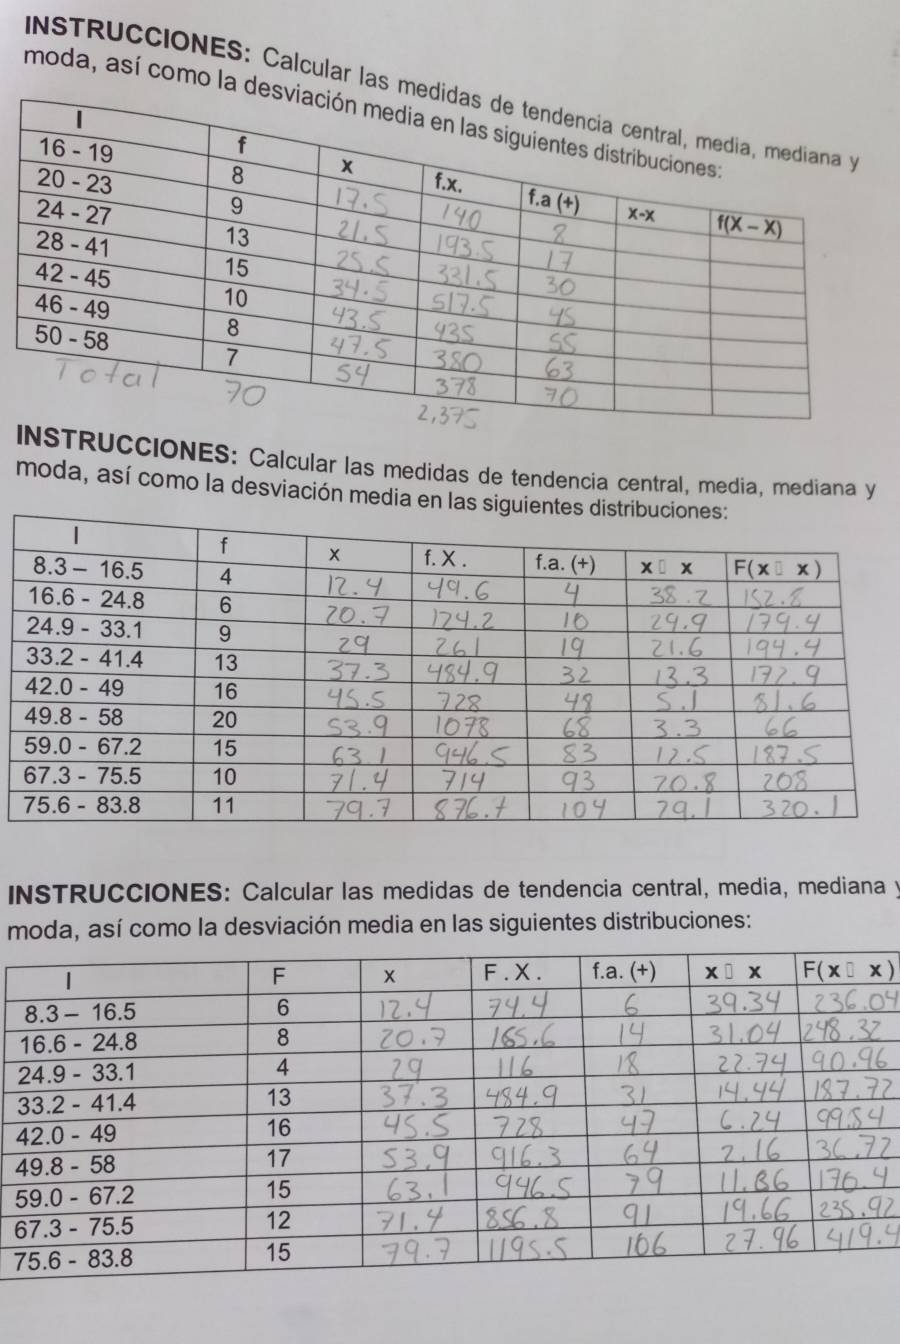 INSTRUCCIONES: Calcular las medidas de tendencia central, media, mediana y
moda, así como la desviación media en las siguientes distribuciones:
I f x f.x. f.a (+) x-x f(X – X)
16 - 19 8 17.5 140 8
20 - 23 9 21.5 193.5 17
24 - 27 13 25.5 331.5 30
28 - 41 15 34.5 517.5 45
42 - 45 10 43.5 435 55
46 - 49 8 47.5 380 63
50 - 58 7 54 378 70
Total 70 2,375
INSTRUCCIONES: Calcular las medidas de tendencia central, media, mediana y
moda, así como la desviación media en las siguientes distribuciones:
I f x f. X . f.a. (+) x▯ x F(x▯ x)
8.3 – 16.5 4 12.4 49.6 4 38.2 152.8
16.6 - 24.8 6 20.7 124.2 10 29.9 179.4
24.9 - 33.1 9 29 261 19 21.6 194.4
33.2 - 41.4 13 37.3 484.9 32 13.3 172.9
42.0 - 49 16 45.5 728 48 5.1 81.6
49.8 - 58 20 53.9 1078 68 3.3 66
59.0 - 67.2 15 63.1 946.5 83 12.5 187.5
67.3 - 75.5 10 71.4 714 93 20.8 208
75.6 - 83.8 11 79.7 876.7 104 29.1 320.1
INSTRUCCIONES: Calcular las medidas de tendencia central, media, mediana y
moda, así como la desviación media en las siguientes distribuciones:
I F x F . X . f.a. (+) x▯ x F(x▯ x)
8.3 – 16.5 6 12.4 74.4 6 39.34 236.04
16.6 - 24.8 8 20.7 165.6 14 31.04 248.32
24.9 - 33.1 4 29 116 18 22.74 90.96
33.2 - 41.4 13 37.3 484.9 31 14.44 187.72
42.0 - 49 16 45.5 728 47 6.24 99.84
49.8 - 58 17 53.9 916.3 64 2.16 36.72
59.0 - 67.2 15 63.1 946.5 79 11.36 170.4
67.3 - 75.5 12 71.4 856.8 91 19.66 235.92
75.6 - 83.8 15 79.7 1195.5 106 27.96 419.4